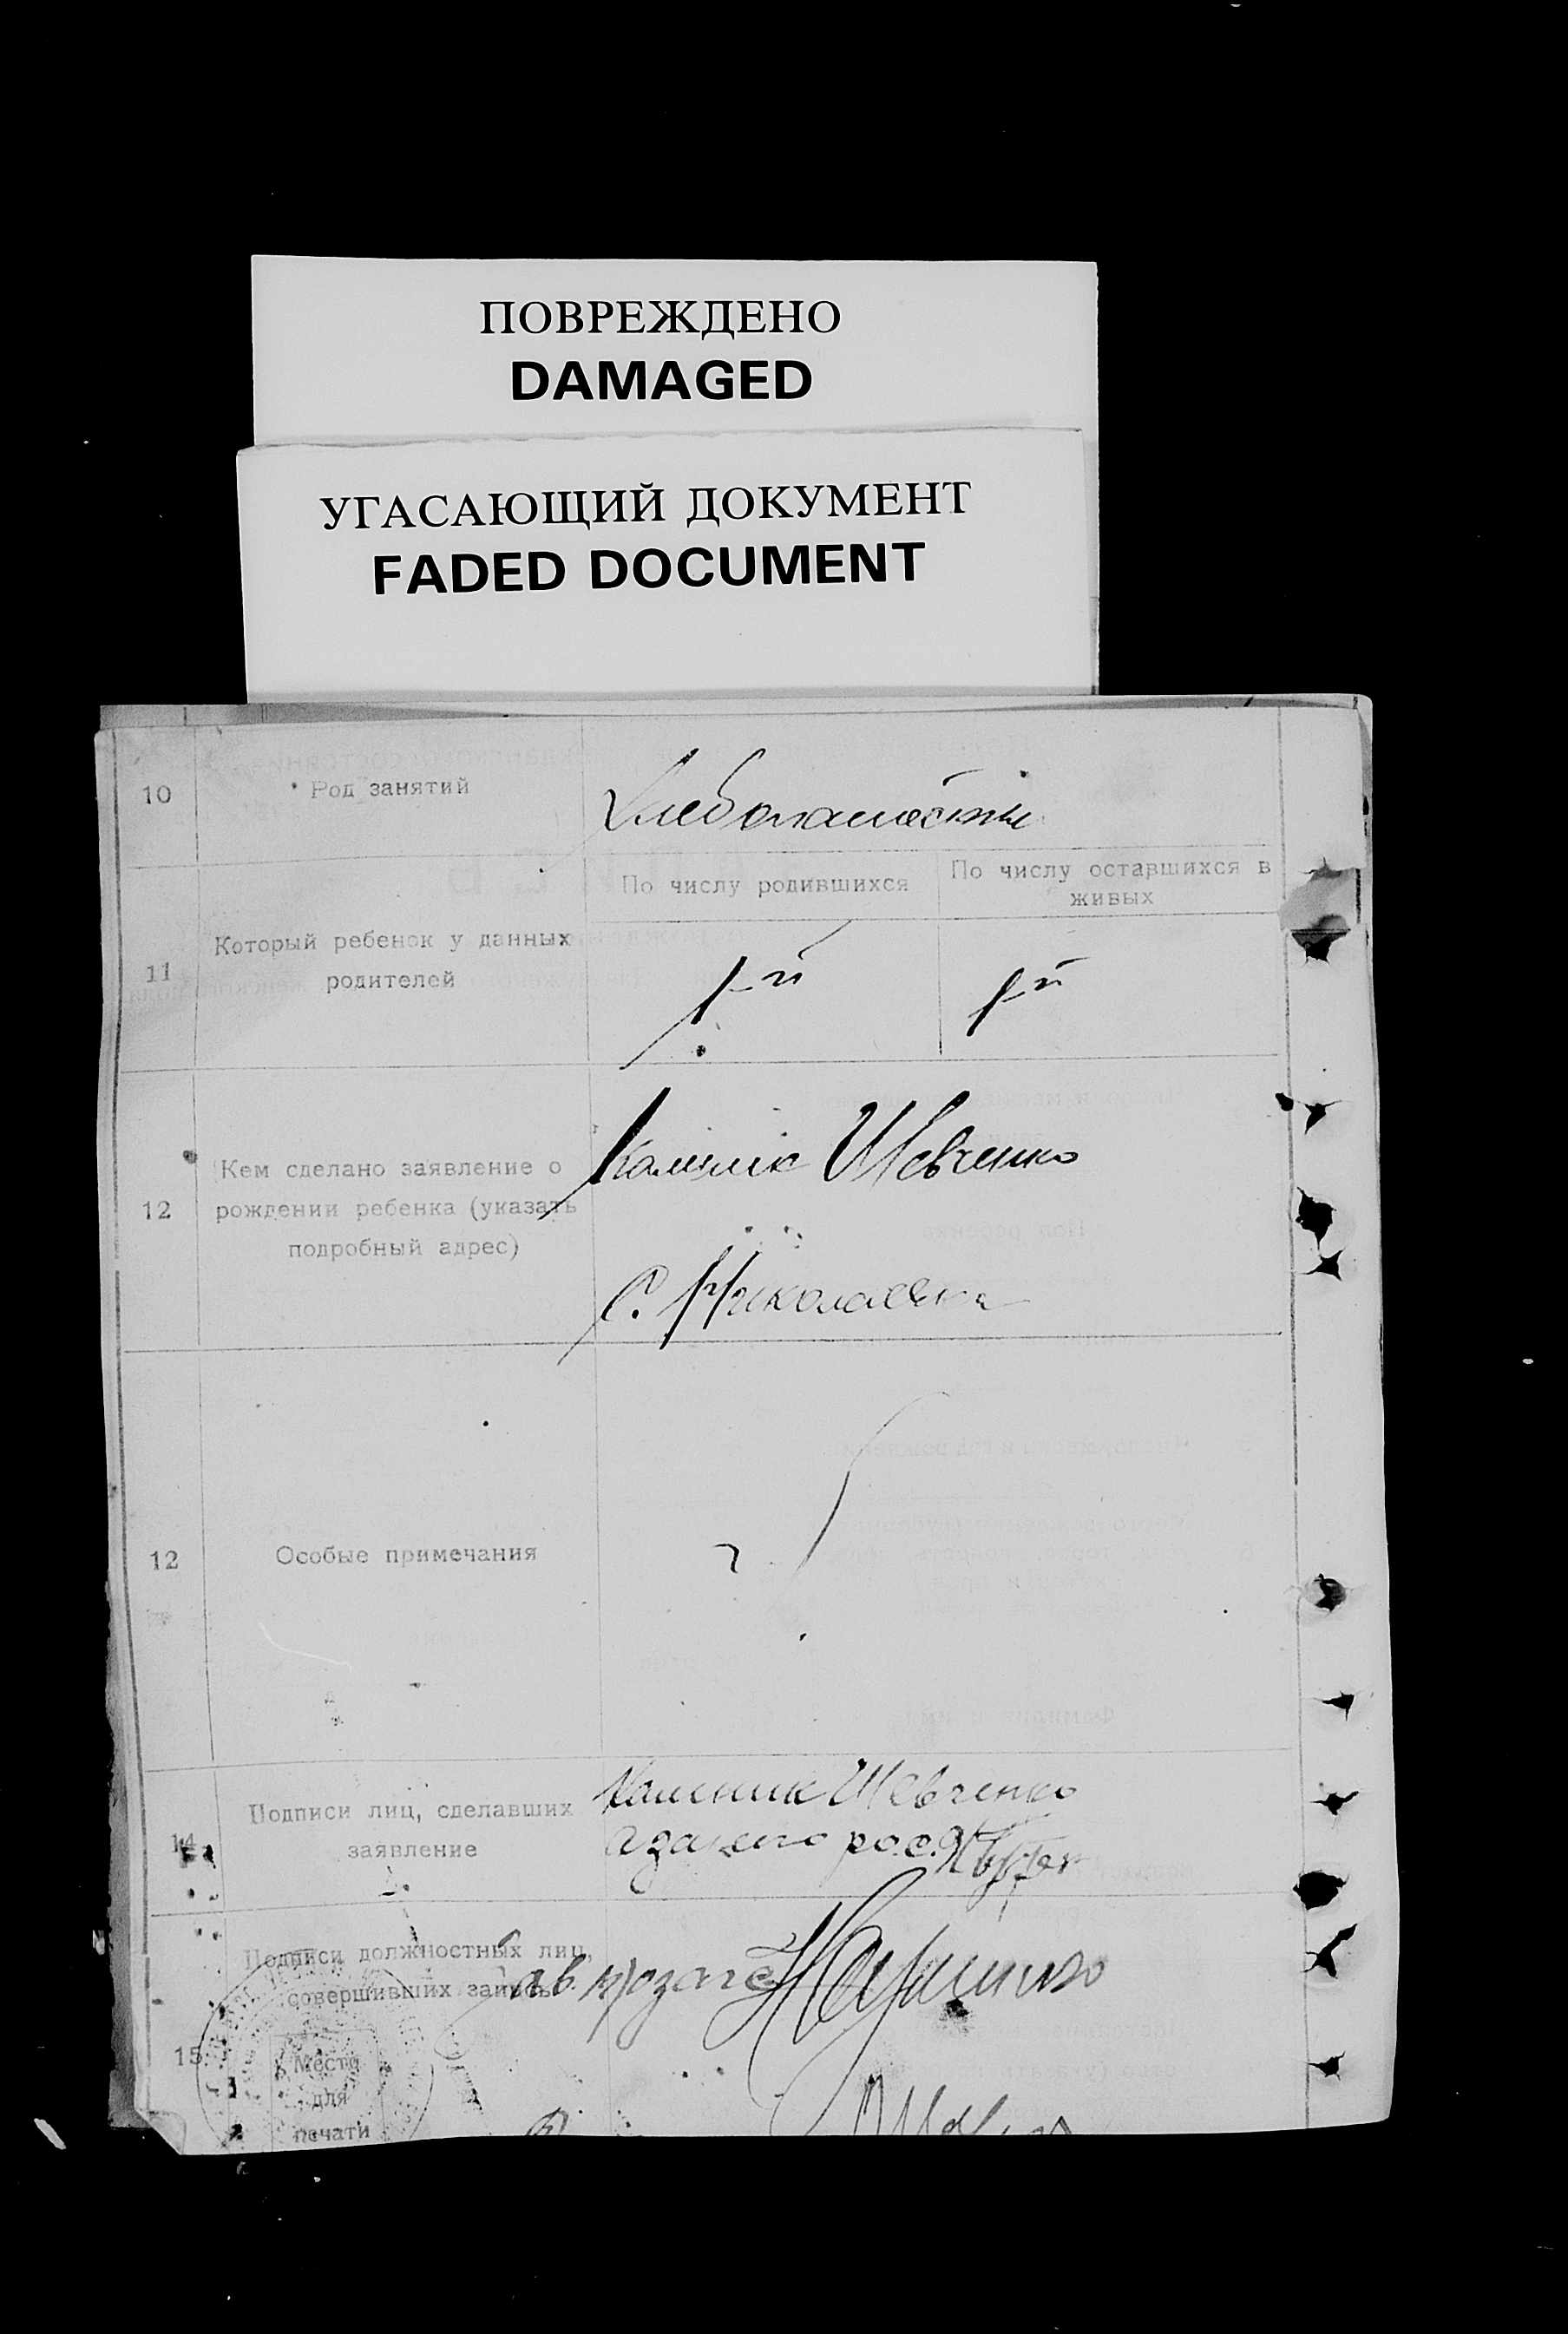 ПОВРЕЖДЕНО
DAMAGED
УГАСАЮЩИЙ ДОКУМЕНТ
FADED DOCUMENT
10
Род занятий
По числу родившихся
По числу оставшихся в
живых
11
Который ребенок у данных
родителей
1-й
1-й
12
Кем сделано заявление о
рождении ребенка (указать
подробный адрес)
Шевченко
С. Николаевка
12
Особые примечания
14
Подписи лиц, сделавших
заявление
Калиник Шевченко
15
Подписи должностных лиц,
совершивших запись
Место
для
печати